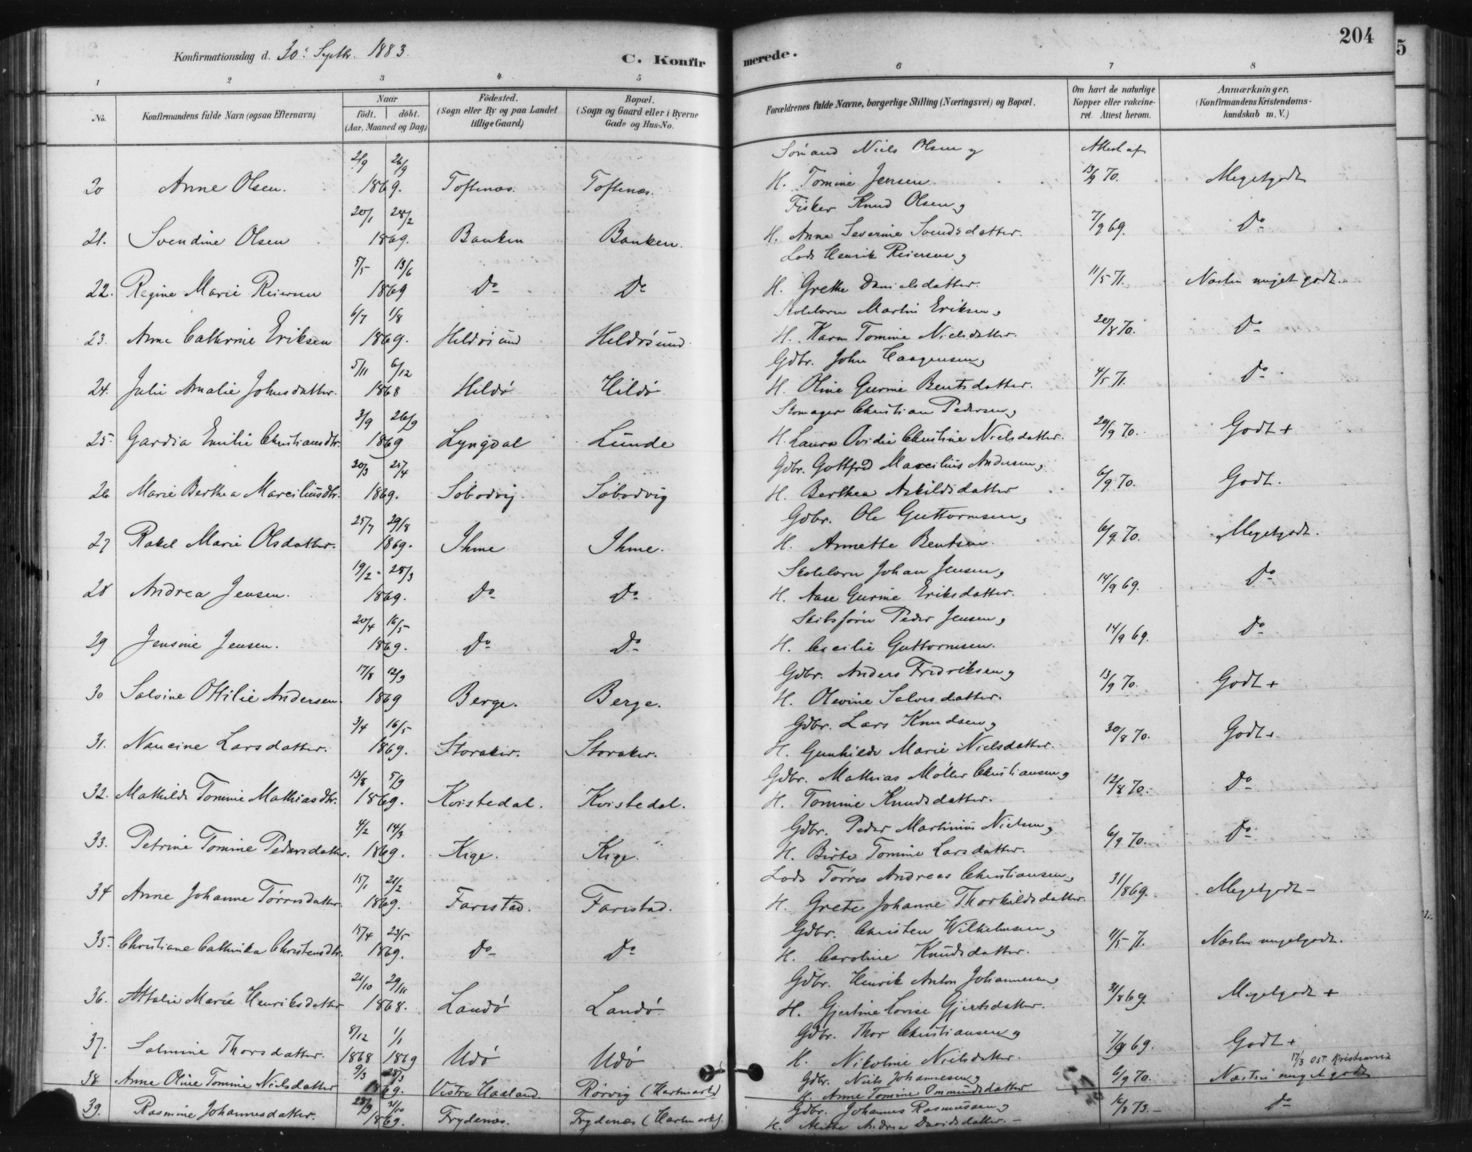 204
5
Konfirmationsdag d. 30' Septbr. 1883.
C. Konfirmerede.
1 2 3 4 5 6 7 8
No. Konfirmandens fulde Navn (ogsaa Efternavn) Naar født. døbt. (Aar, Maaned og Dag) Fødested. (Sogn eller By og paa Landet tillige Gaard) Bopæl. (Sogn og Gaard eller i Byerne Gade og Hus-No. Forældrenes fulde Navne, borgerlige Stilling (Næringsvei) og Bopæl. Om havt de naturlige Kopper eller vaccineret. Attest herom. Anmærkninger. (Konfirmandens Kristendomskundskab m. V.)
2/9 26/9 Sømand Niels Olsen og Attest af
20 Anne Olsen. 1869. Toftenæs. Toftenæs. H. Tomine Jensen 70. Megetgodt
20/1 28/2 Fisker Knud Olsen og
21. Svendine Olsen 1869. Banken Banken. H. Anne Severine Svendsdatter. 7/9 69. Do
5/5 13/6 Lods Henrik Reiersen og
22. Regine Marie Reiersen 1869 Do Do H. Grethe Danielsdatter. 11/5 71. Næsten meget godt.
6/7 1/8 Skolelærer Martin Eriksen og
23. Anne Cathrine Eriksen 1869. Hildøsund Hildøsund. H. Karen Tomine Nielsdatter. 20/8 70. Do
5/11 6/12 Gdbr. John Haagensen og
24. Julie Amalie Johnsdatter. 1868 Hildø Hildø H. Oline Gurine Bentsdatter. 4/5 71. Do
3/9 26/9 Skomager Christian Pedersen og
25 Gardia Emilie Christiansdtr. 1869 Lyngdal Lunde H. Laura Ovidie Christine Nielsdatter. 20/9 70. Godt +
20/3 21/4 Gdbr. Gottfred Marcilius Andersen og
26 Marie Berthea Marciliusdtr. 1869. Søbodvig. Søbodvig H. Berthea Askildsdatter 6/9 70. Godt.
25/7 29/8 Gdbr. Ole Guttormsen og
27 Rakel Marie Olsdatter. 1869. Ihme Ihme. H. Annette Bentsen 6/9 70. Megetgodt.
19/2 28/3 Skolelærer Johan Jensen og
28 Andrea Jensen. 1869. Do Do H. Aase Gurine Eriksdatter. 14/9 69. Do
20/4 16/5 Skibsfører Peder Jensen og
29 Jensine Jensen. 1869. Do Do H. Cecilie Guttormsen. 14/9 69. Do
17/8 12/9 Gdbr. Anders Fredriksen og
30 Salvine Ottilie Andersen. 1869 Berge. Berge. H. Olevine Salvesdatter. 13/9 70. Godt +
3/4 16/5 Gdbr. Lars Knudsen og
31. Nancine Larsdatter. 1869. Storaker. Storaker. H. Gunhilde Marie Nielsdatter. 30/8 70. Godt +
13/8 5/9 Gdbr. Mathias Møller Christiansen og
32. Mathilde Tomine Mathiasdtr. 1869. Kvistedal. Kvistedal. H. Tomine Knudsdatter. 12/8 70. Do
4/2 14/3 Gdbr. Peder Martinius Nielsen og
33. Petrine Tomine Pedersdatter. 1869. Kige. Kige. H. Birte Tomine Larsdatter. 6/9 70. Do
15/1 21/2 Lods Tørres Andreas Christiansen og
34 Anne Johanne Tørresdatter. 1869. Farestad. Farestad. H. Grete Johanne Thorkildsdatter. 31/8 69. Megetgodt -
15/4 23/5 Gdbr. Christen Wilhelmsen og
35 Christiane Cathinka Christensdtr. 1869. Do Do H. Caroline Knudsdatter. 11/5 71. Næsten megetgodt.
21/10 29/11 Gdbr. Henrik Anton Johannesen og
36. Attalie Marie Henriksdatter 1868. Landø Landø H. Gjertine Lovise Gjertsdatter. 31/8 69 Megetgodt +
8/12 1/1 Gdbr. Thor Christiansen og
37. Salmine Thorsdatter. 1868 1869 Udø Udø H. Nikoline Nielsdatter. 7/9 69. Godt +
9/3 28/3 Gdbr. Niels Johannesen og 17/3 057 Kristiania
38 Anne Oline Tomine Nielsdatter 1869. Vestre Haaland Rørvig (Hartmark) H. Anne Tomine Ommundsdatter 6/9 70. Næsten meget godt
31/10 Gdbr. Johannes Rasmussen og
39. Rasmine Johannesdatter. 1869. Frydenæs. Frydenæs (Hartmark). H. Andrea Davidsdatter. 73. Do